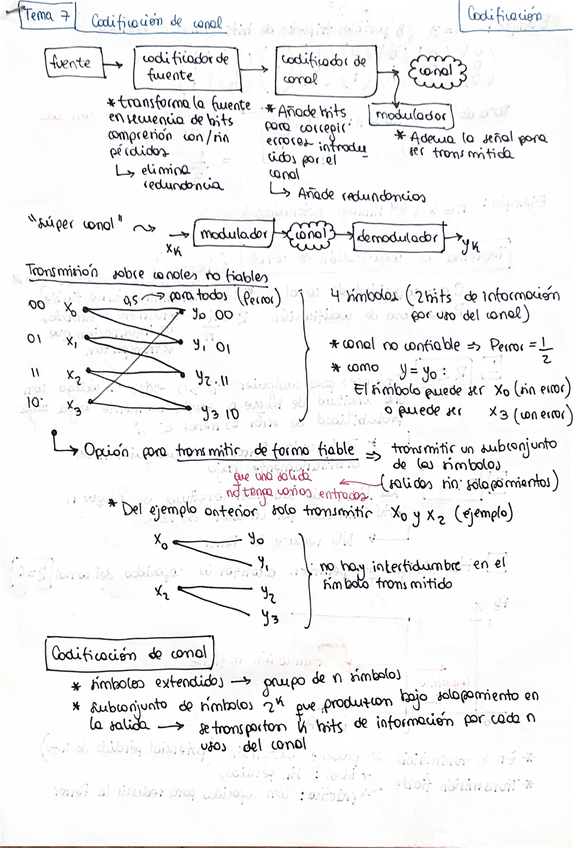 Tema 7 Codificación de canal Codificación
fuente codificador de fuente codificador de canal canal
modulador
* transforma la fuente en secuencia de bits compresión con/sin pérdidas
↳ elimina redundancia
* Añade bits para corregir errores introducidos por el canal
↳ Añade redundancias
* Adecua la señal para ser transmitida
"súper canal" ⇝ xK modulador canal demodulador yK
Transmisión sobre canales no fiables
0,5 → para todos (Perror)
00 x0 y0 00
01 x1 y1 01
11 x2 y2 11
10 x3 y3 10
4 símbolos (2 bits de información
por uso del canal)
* canal no confiable ⇒ Perror = 1/2
* como y = y0 :
El símbolo puede ser x0 (sin error)
o puede ser x3 (con error)
↳ Opción para transmitir de forma fiable ⇒ transmitir un subconjunto
de los símbolos
(salidas sin solapamientos)
que una salida
no tenga varios entradas.
* Del ejemplo anterior solo transmitir x0 y x2 (ejemplo)
x0 y0
y1
x2 y2
y3
no hay incertidumbre en el
símbolo transmitido
Codificación de canal
* símbolos extendidos → grupo de n símbolos
* subconjunto de símbolos 2^K que produzcan bajo solapamiento en
la salida → se transportan K bits de información por cada n
usos del canal